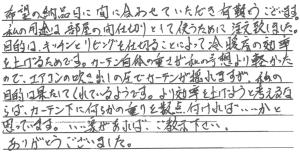 希望の納品日に間に合わせていただき有難うございます。
私の用途は、部屋の間仕切りとして使うために注文致しました。
目的は、キッチンとリビングを仕切ることによって冷暖房の効率
を上げるためです。カーテン自体の重さが私の予想より軽かった
ので、エアコンの吹き出しの風でカーテンが揺れますが、私の
目的は果たしてくれているようです。より効率を上げようと考えるな
らば、カーテン下に何らかの重りを数点付ければいいかと
思っています。いい案があれば、ご教示下さい。
ありがとうございました。